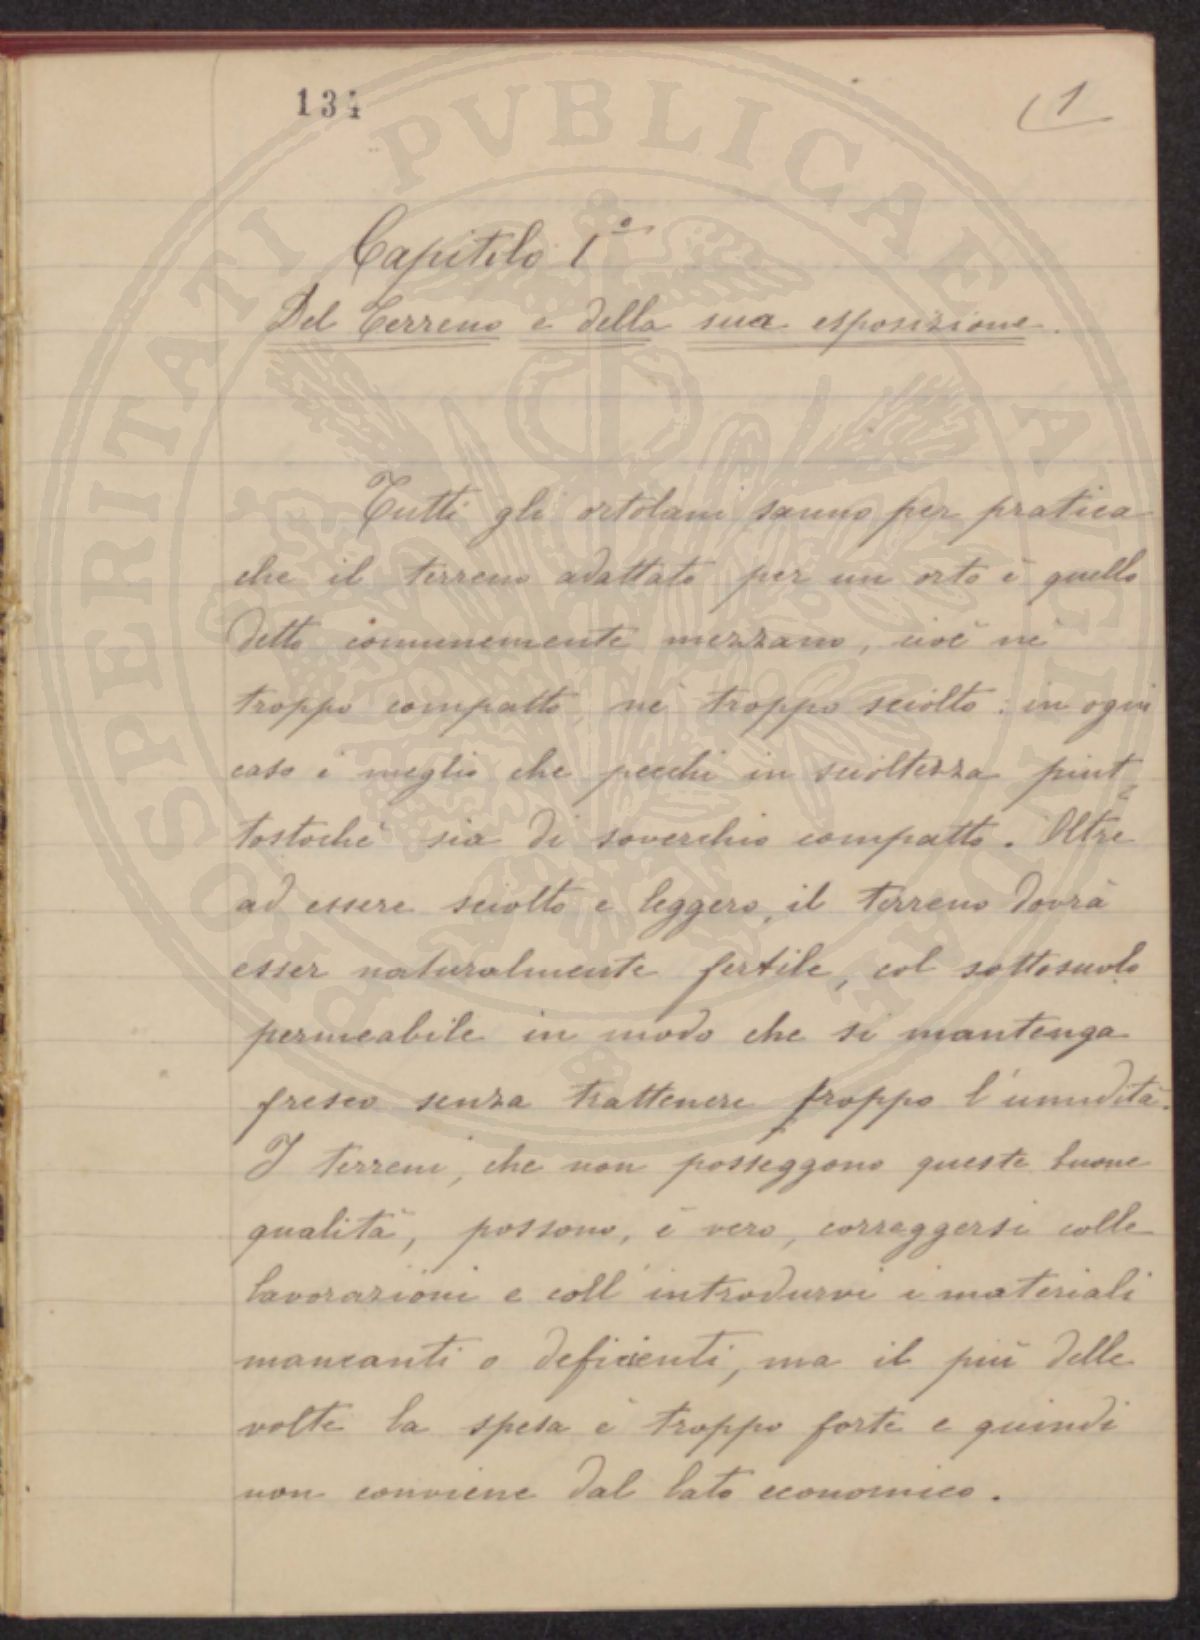 134
1
Capitolo 1°
Del Terreno e della sua esposizione.
Tutti gli ortolani sanno per pratica
che il terreno adattato per un orto è quello
detto comunemente mezzano, cioè nè
troppo compatto, nè troppo sciolto: in ogni
caso è meglio che pecchi in scioltezza piut=
tostochè sia di soverchio compatto. Oltre
ad essere sciolto e leggero, il terreno dovrà
esser naturalmente fertile, col sottosuolo
permeabile in modo che si mantenga
fresco senza trattenere troppo l'umidità.
I terreni, che non posseggono queste buone
qualità, possono, è vero, correggersi colle
lavorazioni e coll'introdurvi i materiali
mancanti o deficienti, ma il più delle
volte la spesa è troppo forte e quindi
non conviene dal lato economico.
PROSPERITATI PVBLICAE AVGENDAE